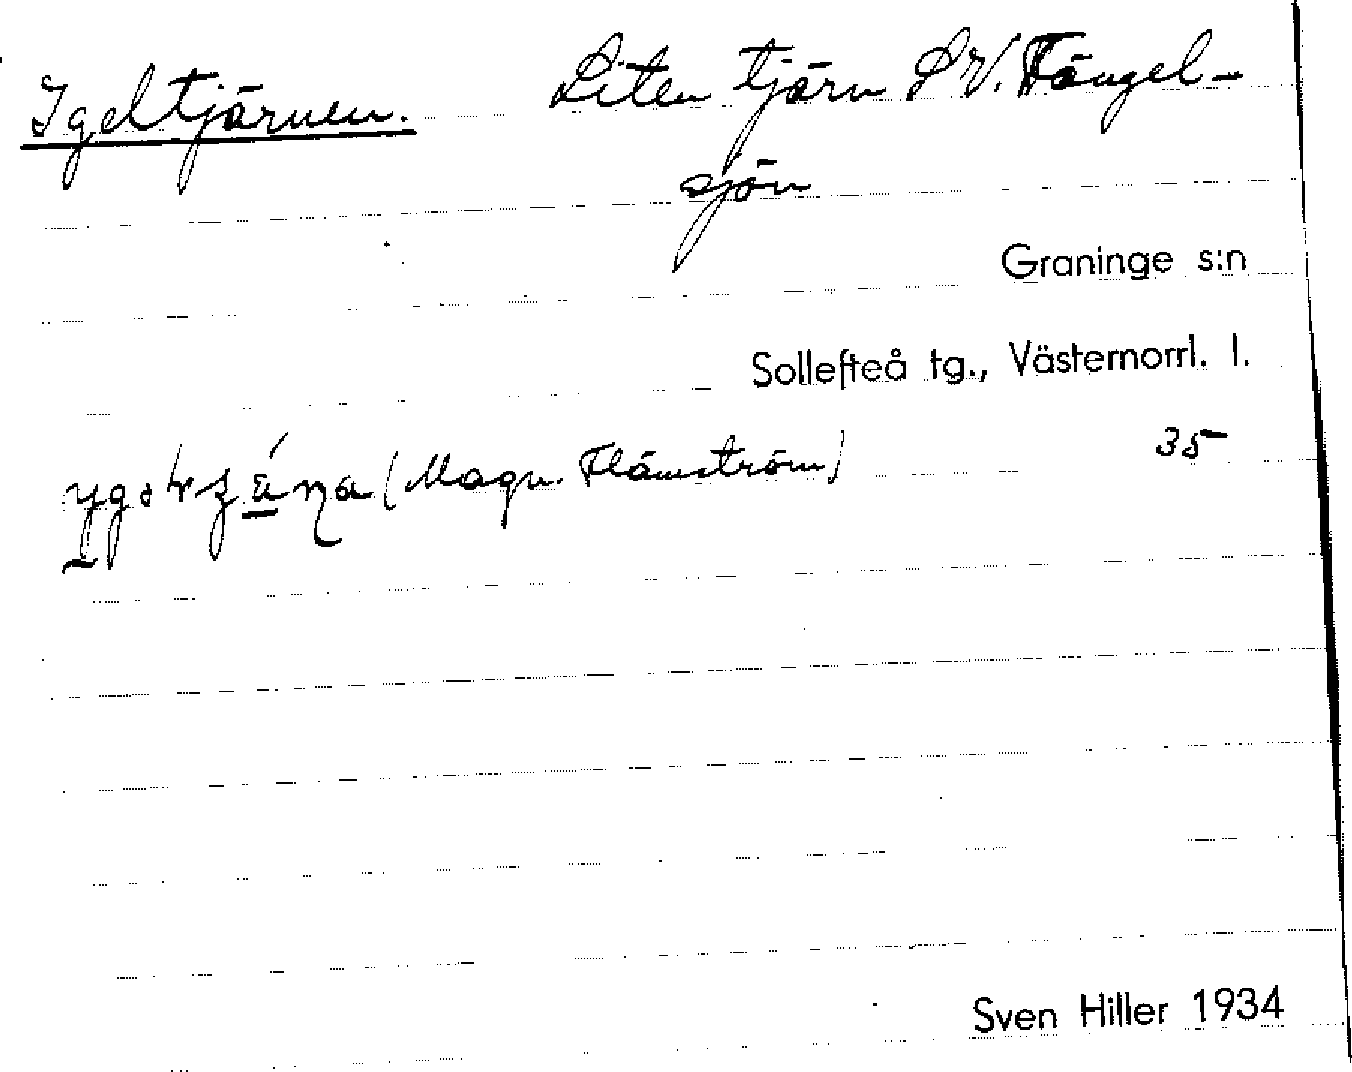 Igeltjärnen. Liten tjärn SV. Tängel-
sjön
Graninge s:n
Sollefteå tg., Västernorrl. l.
(Magn. Flämström) 35
Sven Hiller 1934